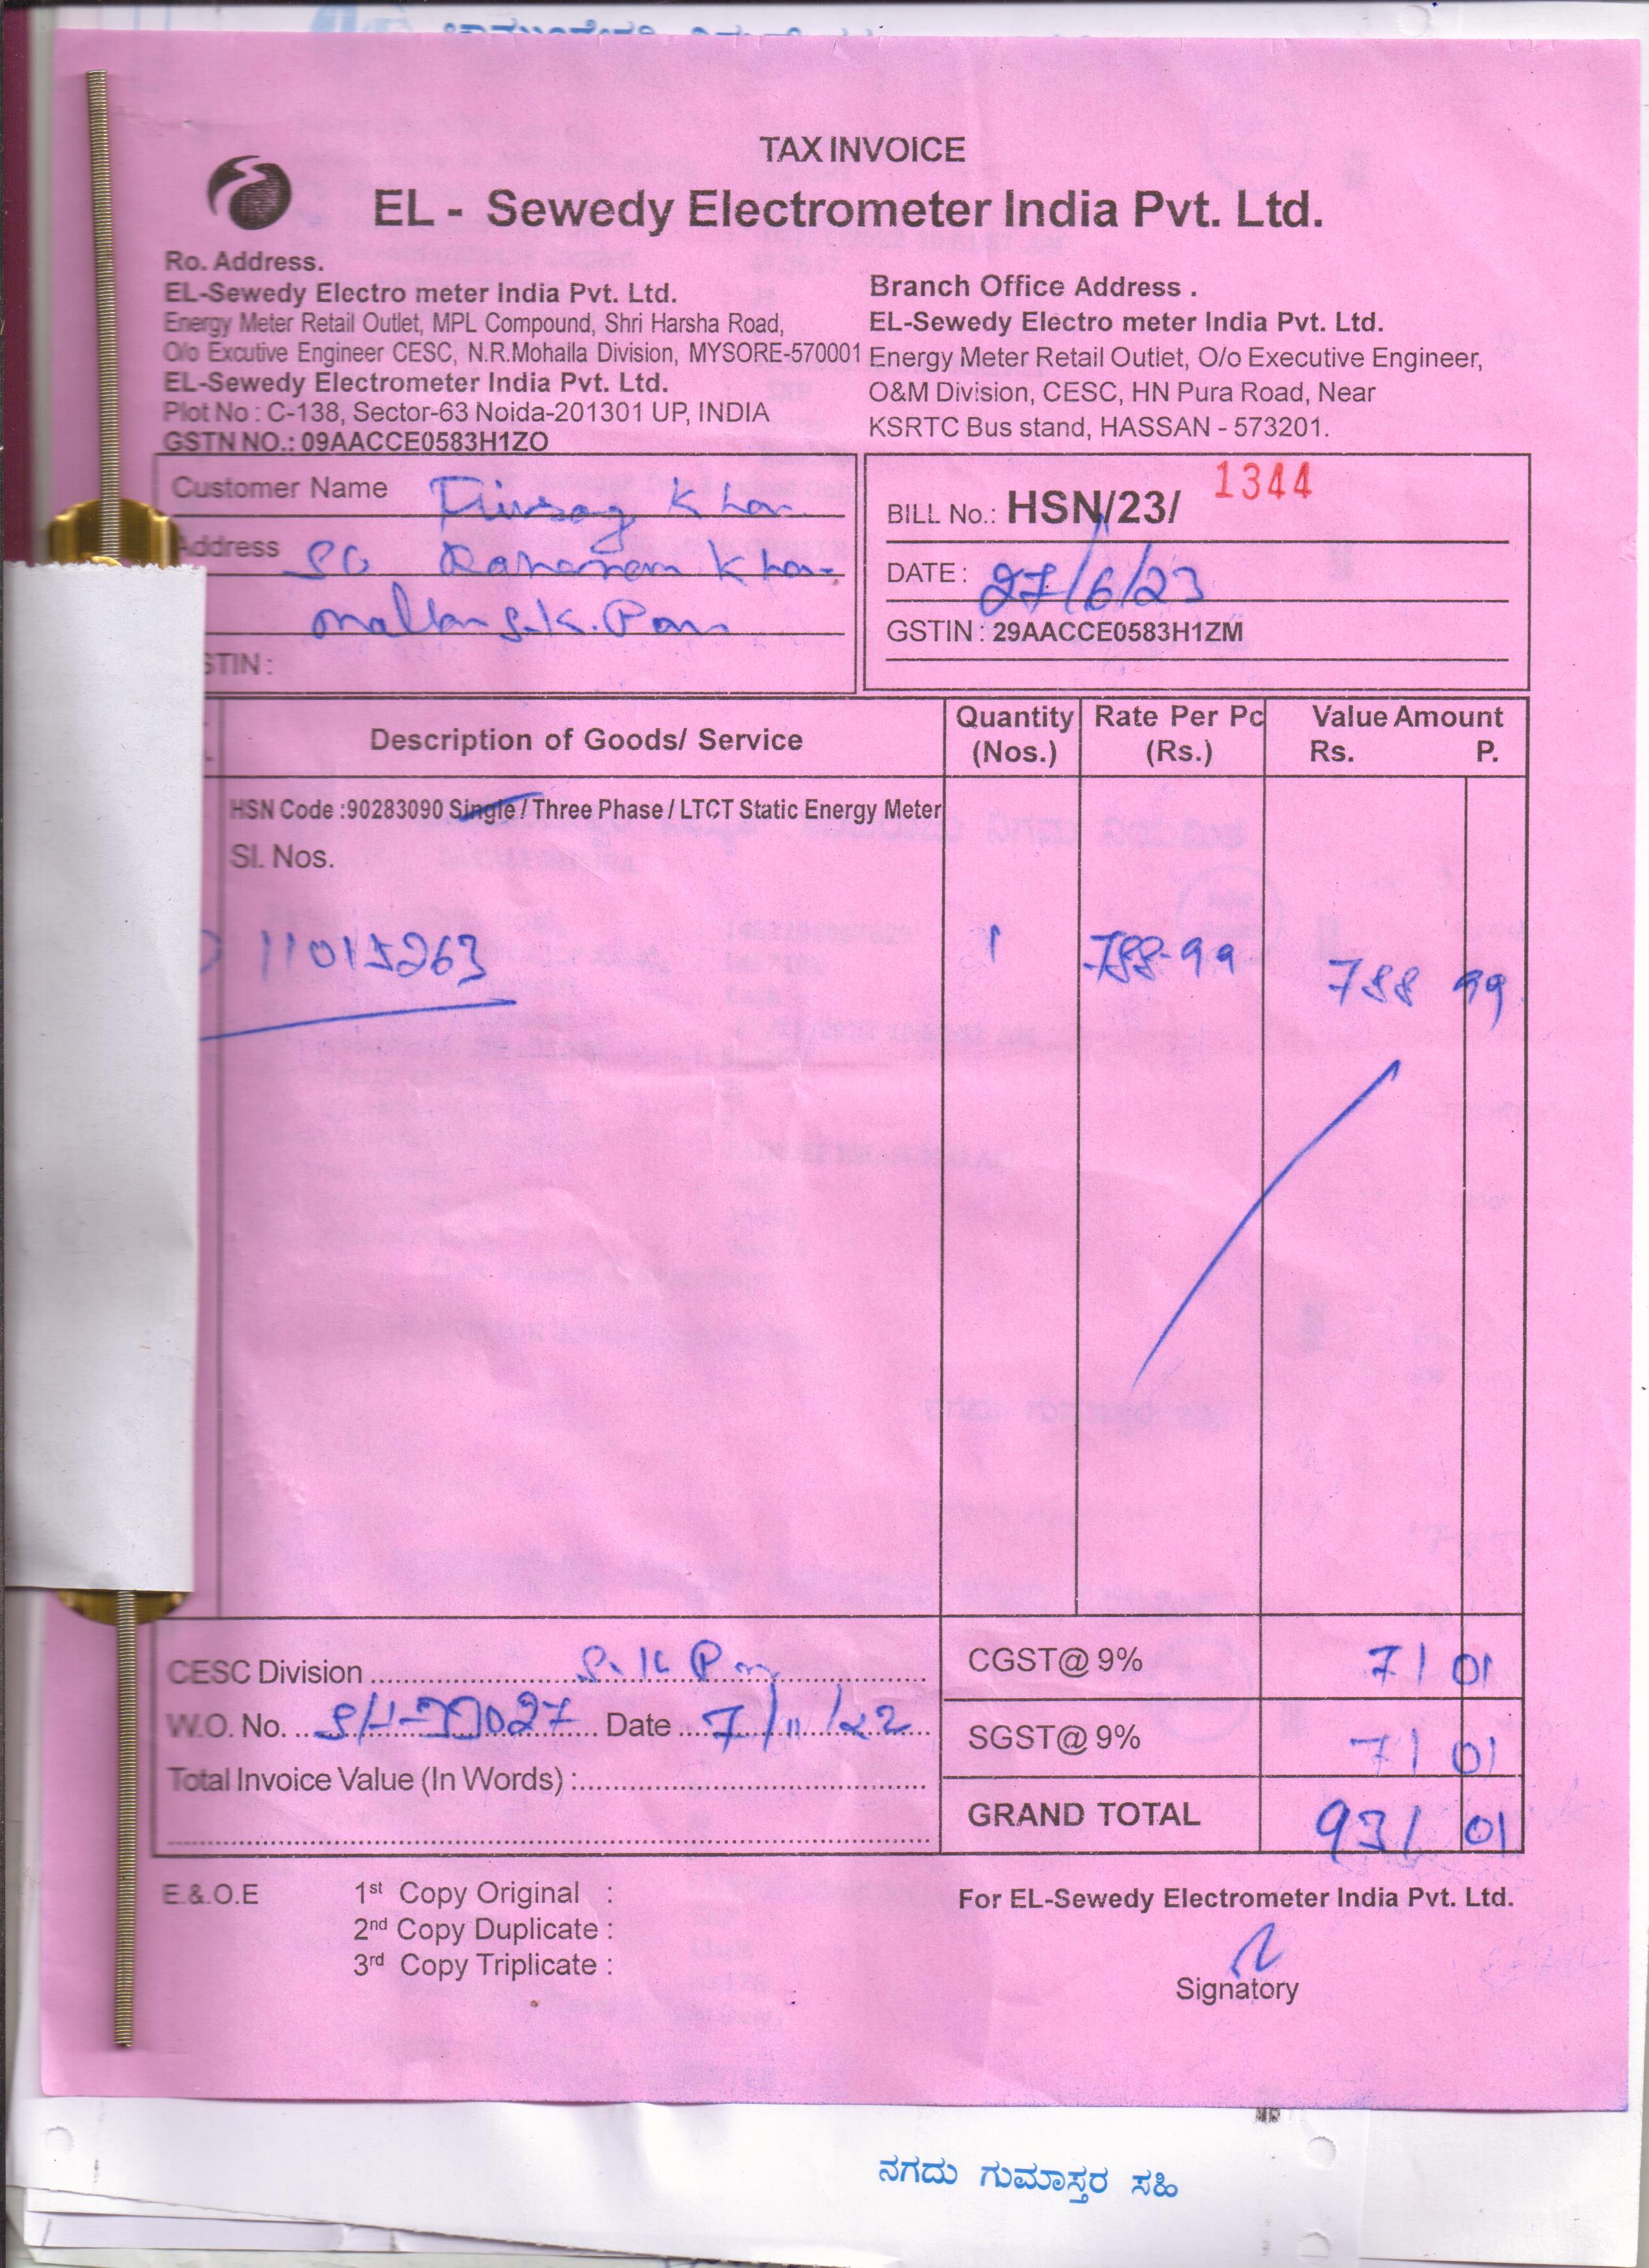 TAX INVOICE
EL - Sewedy Electrometer India Pvt. Ltd.
Ro. Address.
EL-Sewedy Electro meter India Pvt. Ltd.
Energy Meter Retail Outlet, MPL Compound, Shri Harsha Road,
O/o Excutive Engineer CESC, N.R.Mohalla Division, MYSORE-570001
EL-Sewedy Electrometer India Pvt. Ltd.
Plot No : C-138, Sector-63 Noida-201301 UP, INDIA
GSTN NO.: 09AACCE0583H1ZO
Branch Office Address .
EL-Sewedy Electro meter India Pvt. Ltd.
Energy Meter Retail Outlet, O/o Executive Engineer,
O&M Division, CESC, HN Pura Road, Near
KSRTC Bus stand, HASSAN - 573201.
Customer Name Khan
Address Khan
STIN :
BILL No.: HSN/23/ 1344
DATE : 27/6/23
GSTIN : 29AACCE0583H1ZM
Description of Goods/ Service Quantity (Nos.) Rate Per Pc (Rs.) Value Amount Rs. P.
HSN Code :90283090 Single / Three Phase / LTCT Static Energy Meter
Sl. Nos.
11015263 1 788-99 788 99
CESC Division
CGST@ 9% 71 01
W.O. No. Date 7/11/22
SGST@ 9% 71 01
Total Invoice Value (In Words) :
GRAND TOTAL 931 01
E.& O.E 1st Copy Original :
2nd Copy Duplicate :
3rd Copy Triplicate :
For EL-Sewedy Electrometer India Pvt. Ltd.
Signatory
ನಗದು ಗುಮಾಸ್ತರ ಸಹಿ